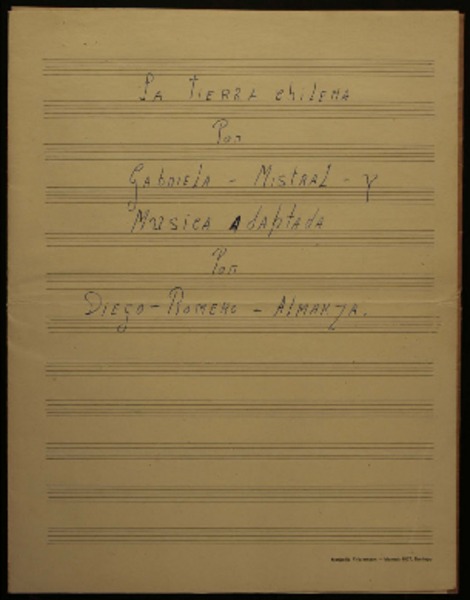 La Tierra chilena
Por
Gabriela - Mistral - y
Musica Adaptada
Por
Diego - Romero - Almanza.